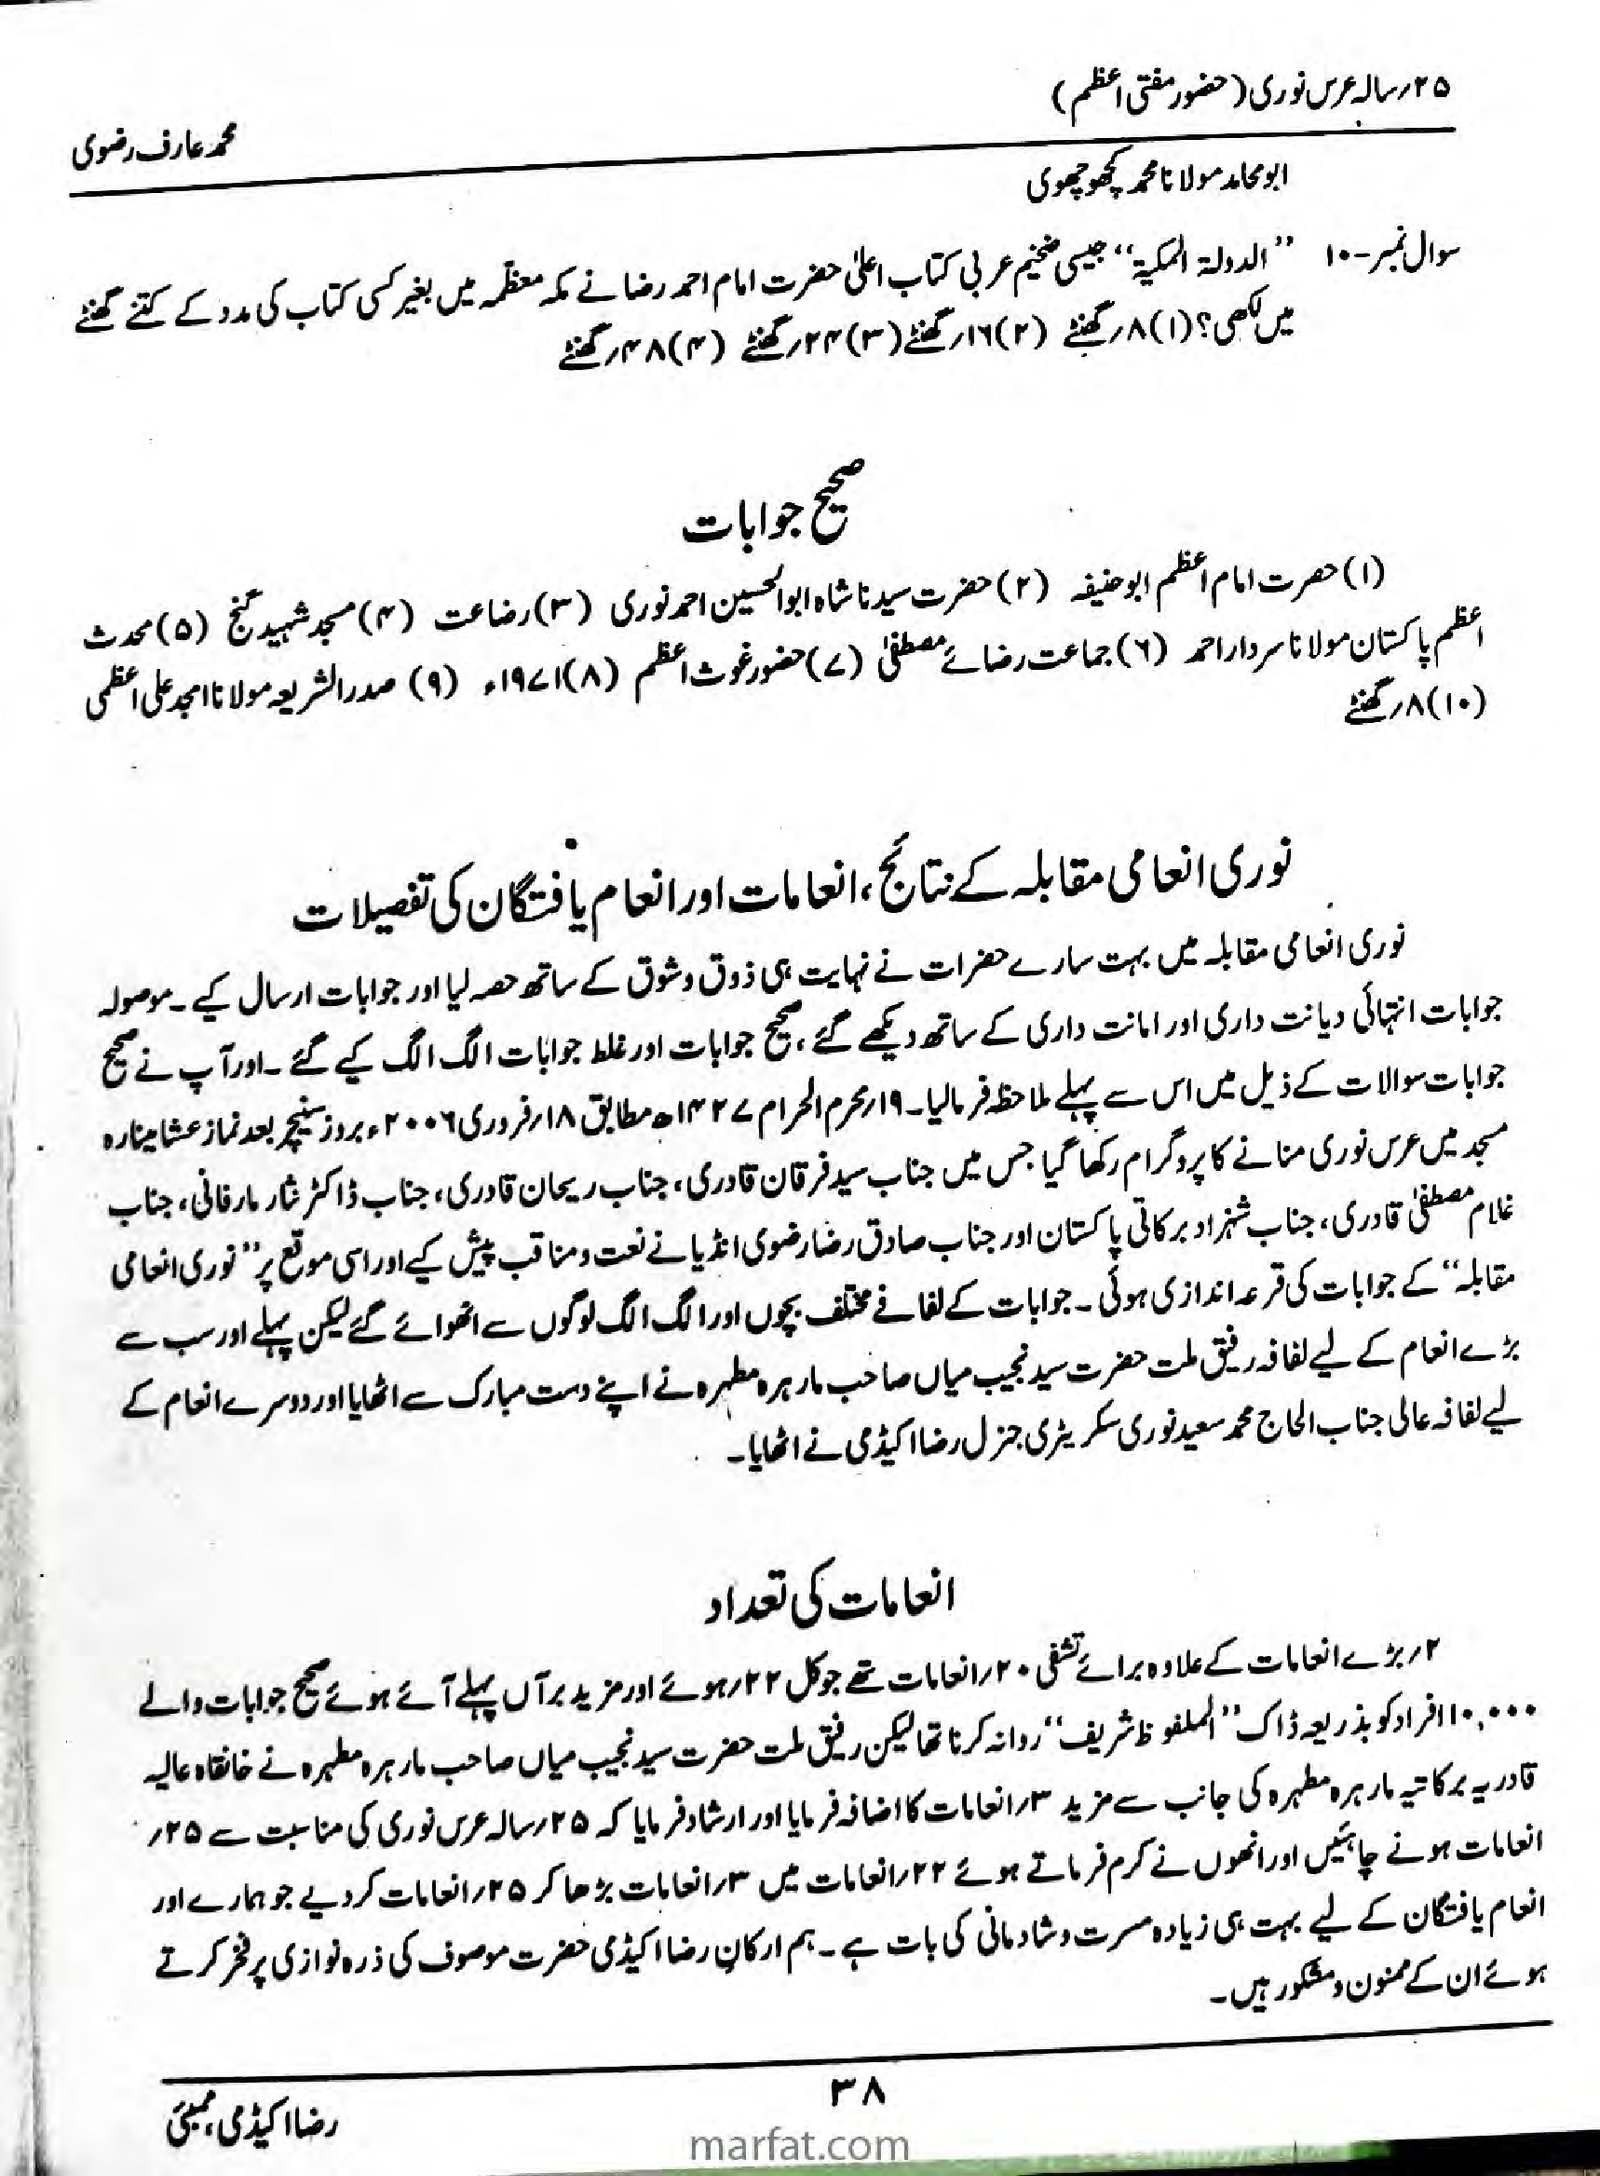 ۲۵؍سالہ عرس نوری (حضور مفتی اعظم)
محمد عارف رضوی
ابو محامد مولانا محمد کچھوچھوی
سوال نمبر-۱۰ ”الدولۃ المکیۃ“ جیسی ضخیم عربی کتاب اعلیٰ حضرت امام احمد رضا نے مکہ معظّمہ میں بغیر کسی کتاب کی مدد کے کتنے گھنٹے
میں لکھی؟ (۱) ۸؍گھنٹے (۲) ۱۶؍گھنٹے (۳) ۲۴؍گھنٹے (۴) ۴۸؍گھنٹے
صحیح جوابات
(۱) حضرت امام اعظم ابوحنیفہ (۲) حضرت سیدنا شاہ ابوالحسین احمد نوری (۳) رضاعت (۴) مسجد شہید گنج (۵) محدث
اعظم پاکستان مولانا سردار احمد (۶) جماعت رضائے مصطفیٰ (۷) حضور غوث اعظم (۸) ۱۹۷۱ء (۹) صدرالشریعہ مولانا امجد علی اعظمی
(۱۰) ۸؍گھنٹے
نوری انعامی مقابلہ کے نتائج، انعامات اور انعام یافتگان کی تفصیلات
نوری انعامی مقابلہ میں بہت سارے حضرات نے نہایت ہی ذوق و شوق کے ساتھ حصہ لیا اور جوابات ارسال کیے۔ موصولہ
جوابات انتہائی دیانت داری اور امانت داری کے ساتھ دیکھے گئے، صحیح جوابات اور غلط جوابات الگ الگ کیے گئے۔ اور آپ نے صحیح
جوابات سوالات کے ذیل میں اس سے پہلے ملاحظہ فرمالیا۔ ۱۹؍محرم الحرام ۱۴۲۷ھ مطابق ۱۸؍فروری ۲۰۰۶ء بروز سنیچر بعد نماز عشا مینارہ
مسجد میں عرس نوری منانے کا پروگرام رکھا گیا جس میں جناب سید فرقان قادری، جناب ریحان قادری، جناب ڈاکٹر نثار مارفانی، جناب
غلام مصطفیٰ قادری، جناب شہزاد برکاتی پاکستان اور جناب صادق رضا رضوی انڈیا نے نعت و مناقب پیش کیے اور اسی موقع پر ”نوری انعامی
مقابلہ“ کے جوابات کی قرعہ اندازی ہوئی۔ جوابات کے لفافے مختلف بچوں اور الگ الگ لوگوں سے اٹھوائے گئے لیکن پہلے اور سب سے
بڑے انعام کے لیے لفافہ رفیق ملت حضرت سید نجیب میاں صاحب مارہرہ مطہرہ نے اپنے دست مبارک سے اٹھایا اور دوسرے انعام کے
لیے لفافہ عالی جناب الحاج محمد سعید نوری سکریٹری جنرل رضا اکیڈمی نے اٹھایا۔
انعامات کی تعداد
۲؍بڑے انعامات کے علاوہ برائے تشفی ۲۰؍انعامات تھے جو کل ۲۲؍ہوئے اور مزید برآں پہلے آئے ہوئے صحیح جوابات والے
۱۱۰,۰۰۰ افراد کو بذریعہ ڈاک ”الملفوظ شریف“ روانہ کرنا تھا لیکن رفیق ملت حضرت سید نجیب میاں صاحب مارہرہ مطہرہ نے خانقاہ عالیہ
قادریہ برکاتیہ مارہرہ مطہرہ کی جانب سے مزید ۳؍انعامات کا اضافہ فرمایا اور ارشاد فرمایا کہ ۲۵؍سالہ عرس نوری کی مناسبت سے ۲۵؍
انعامات ہونے چاہئیں اور انھوں نے کرم فرماتے ہوئے ۲۲؍انعامات میں ۳؍انعامات بڑھا کر ۲۵؍انعامات کردیے جو ہمارے اور
انعام یافتگان کے لیے بہت ہی زیادہ مسرت و شادمانی کی بات ہے۔ ہم ارکان رضا اکیڈمی حضرت موصوف کی ذرہ نوازی پر فخر کرتے
ہوئے ان کے ممنون و مشکور ہیں۔
۳۸
رضا اکیڈمی، ممبئی
marfat.com